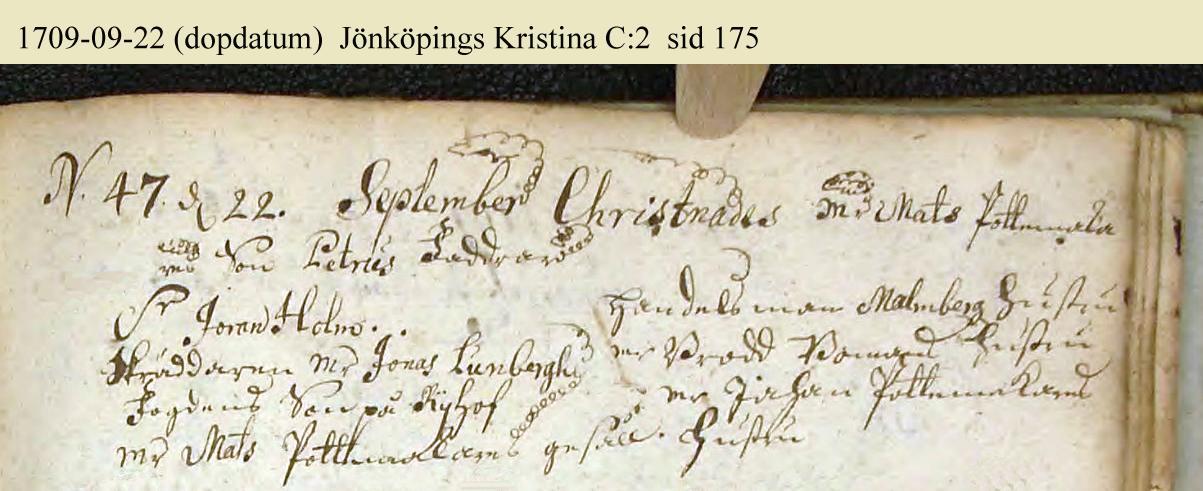 1709-09-22 (dopdatum) Jönköpings Kristina C:2 sid 175
N. 47. d 22. September Christnades mr Mats Pottemaka
res Son Petrus Faddrar
Sr Joran Holm.
Skräddaren mr Jonas Lunbergh
Fogdens Son på Ryhof
mr Mats Pottmakares gesäll.
Handels man Malmberg Hustru
mr Hustru
mr Johan Pottemakares
Hustru